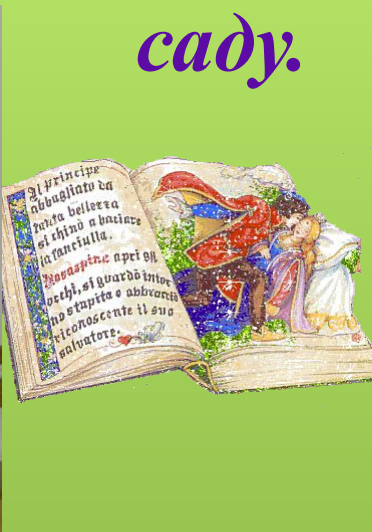 cady.
Il Principe
abbagliato da
tanta bellezza
si chinò a baciare
la fanciulla.
Rosaspina aprì gli
occhi, si guardò intor
no stupita e abbracciò
riconoscente il suo
salvatore.